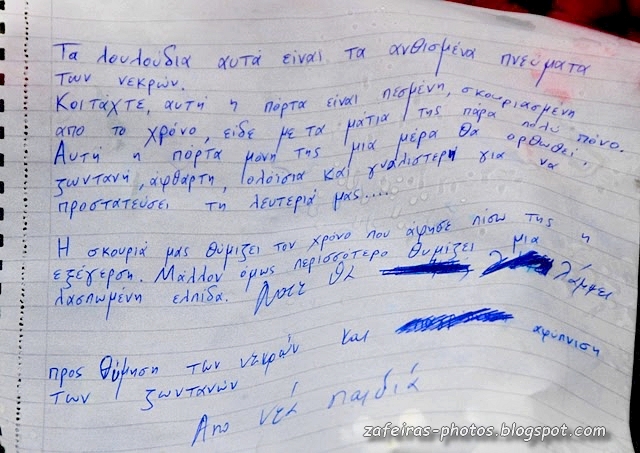 Τα λουλούδια αυτά είναι τα ανθισμένα πνεύματα
των νεκρών.
Κοιτάχτε, αυτή η πόρτα είναι πεσμένη, σκουριασμένη
απο το χρόνο, είδε με τα μάτια της πάρα πολύ πόνο.
Αυτή η πόρτα μόνη της μια μέρα θα ορθωθεί,
ζωντανή, άφθαρτη, ολόϊσια και γυαλιστερή για να
προστατεύσει τη λευτεριά μας.....
Η σκουριά μας θυμίζει τον χρόνο που άφησε πίσω της η
εξέγερση. Μάλλον όμως περισσότερο θυμίζει μια
λασπωμένη ελπίδα. Ποτέ θα λάμψει
προς θύμηση των νεκρών και αφύπνιση
των ζωντανών
Απο νέα παιδιά
zafeiras-photos.blogspot.com